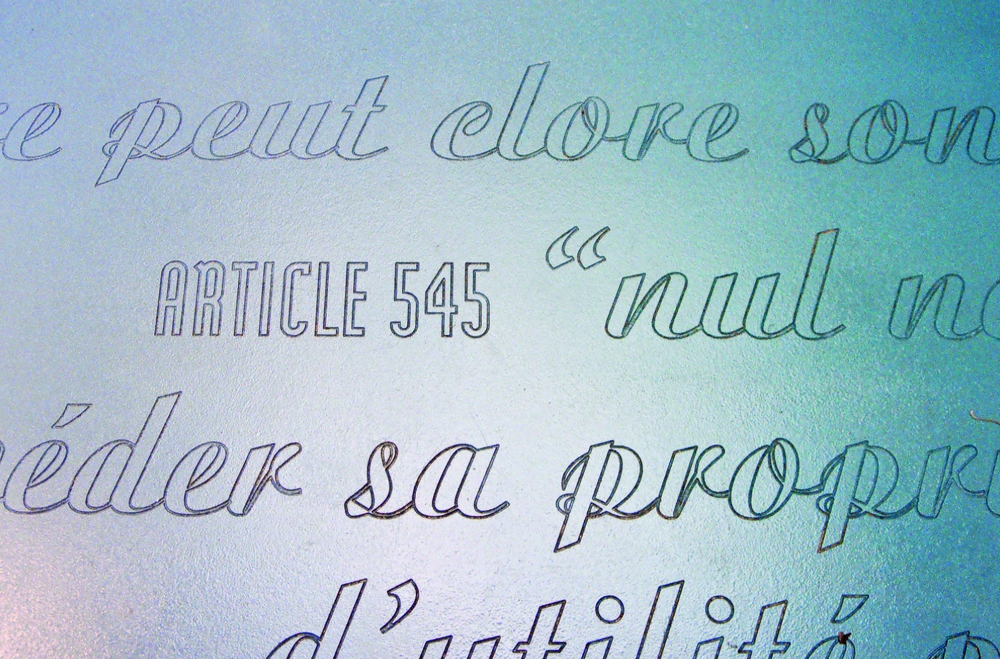 peut clore son
ARTICLE 545 “nul ne
éder sa propri
d’utilité